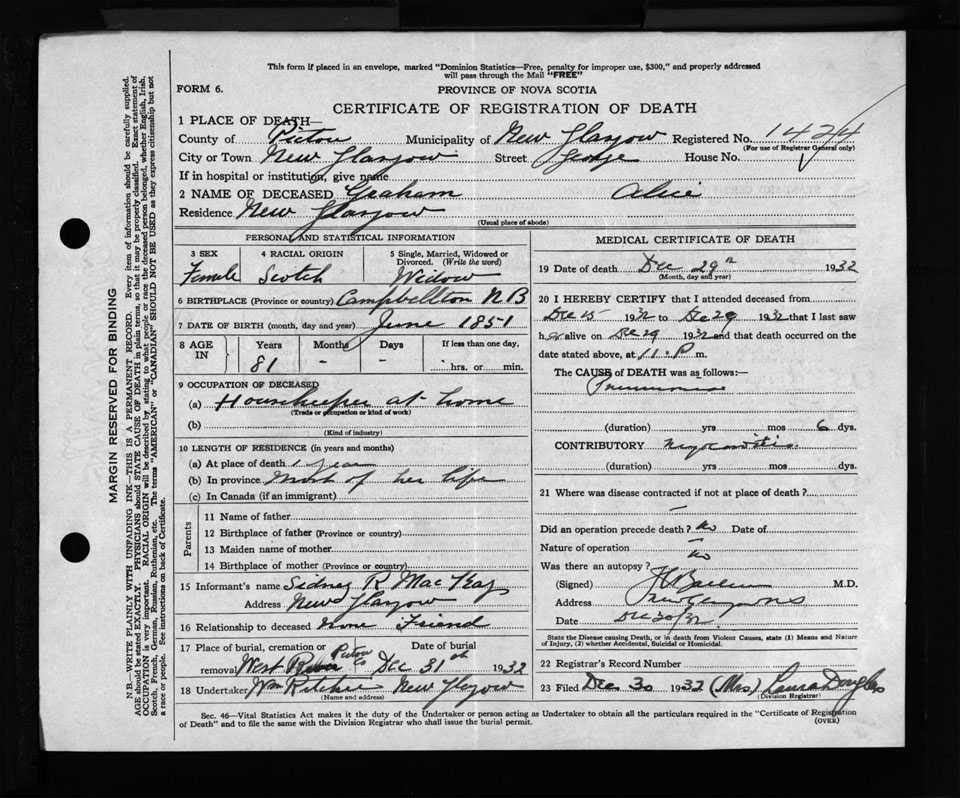 This form if placed in an envelope, marked "Dominion Statistics—Free, penalty for improper use, $300," and properly addressed
will pass through the Mail "FREE"
FORM 6.
PROVINCE OF NOVA SCOTIA
CERTIFICATE OF REGISTRATION OF DEATH
1 PLACE OF DEATH—
County of Pictou Municipality of New Glasgow Registered No. 1424
(For use of Registrar General only)
City or Town New Glasgow Street George House No.
If in hospital or institution, give name
2 NAME OF DECEASED Graham Alice
Residence New Glasgow
(Usual place of abode)
PERSONAL AND STATISTICAL INFORMATION
3 SEX 4 RACIAL ORIGIN 5 Single, Married, Widowed or
Divorced. (Write the word)
Female Scotch Widow
6 BIRTHPLACE (Province or country) Campbellton N B
7 DATE OF BIRTH (month, day and year) June 1851
8 AGE IN Years Months Days If less than one day,
81 - - hrs. or min.
9 OCCUPATION OF DECEASED
(a) Housekeeper at home
(Trade or occupation or kind of work)
(b)
(Kind of industry)
10 LENGTH OF RESIDENCE (in years and months)
(a) At place of death 1 year
(b) In province Most of her life
(c) In Canada (if an immigrant)
Parents
11 Name of father
12 Birthplace of father (Province or country)
13 Maiden name of mother
14 Birthplace of mother (Province or country)
15 Informant's name Sidney R MacKay
Address New Glasgow
16 Relationship to deceased None Friend
17 Place of burial, cremation or Pictou
removal West River Co Dec 31st 1932
18 Undertaker Wm Ritchie New Glasgow
(Name and address)
MEDICAL CERTIFICATE OF DEATH
19 Date of death Dec 29th 1932
(Month, day and year)
20 I HEREBY CERTIFY that I attended deceased from
Dec 15 1932 to Dec 29 1932 that I last saw
her alive on Dec 29 1932 and that death occurred on the
date stated above, at 11 P m.
The CAUSE of DEATH was as follows:—
Pneumonia
(duration) yrs mos 6 dys.
CONTRIBUTORY Myocarditis
(duration) yrs mos dys.
21 Where was disease contracted if not at place of death?
-
Did an operation precede death? No Date of
Nature of operation -
Was there an autopsy? No
(Signed) M.D.
Address New Glasgow NS
Date Dec 30/32
State the Disease causing Death, or in death from Violent Causes, state (1) Means and Nature
of Injury, (2) whether Accidental, Suicidal or Homicidal.
22 Registrar's Record Number
23 Filed Dec 30 1932 (Mrs) Laura Douglas
(Division Registrar)
Sec. 46—Vital Statistics Act makes it the duty of the Undertaker or person acting as Undertaker to obtain all the particulars required in the "Certificate of Registration
of Death" and to file the same with the Division Registrar who shall issue the burial permit.
(OVER)
MARGIN RESERVED FOR BINDING
N.B.—WRITE PLAINLY WITH UNFADING INK—THIS IS A PERMANENT RECORD. Every item of information should be carefully supplied.
AGE should be stated EXACTLY. PHYSICIANS should STATE CAUSE OF DEATH in plain terms, so that it may be properly classified. Exact statement of
OCCUPATION is very important. RACIAL ORIGIN will be described by stating to what people or race the deceased person belonged, whether English, Irish,
Scotch, French, German, Russian, Ruthenian, etc. The terms "AMERICAN" or "CANADIAN" SHOULD NOT BE USED as they express citizenship but not
a race or people. See instructions on back of Certificate.